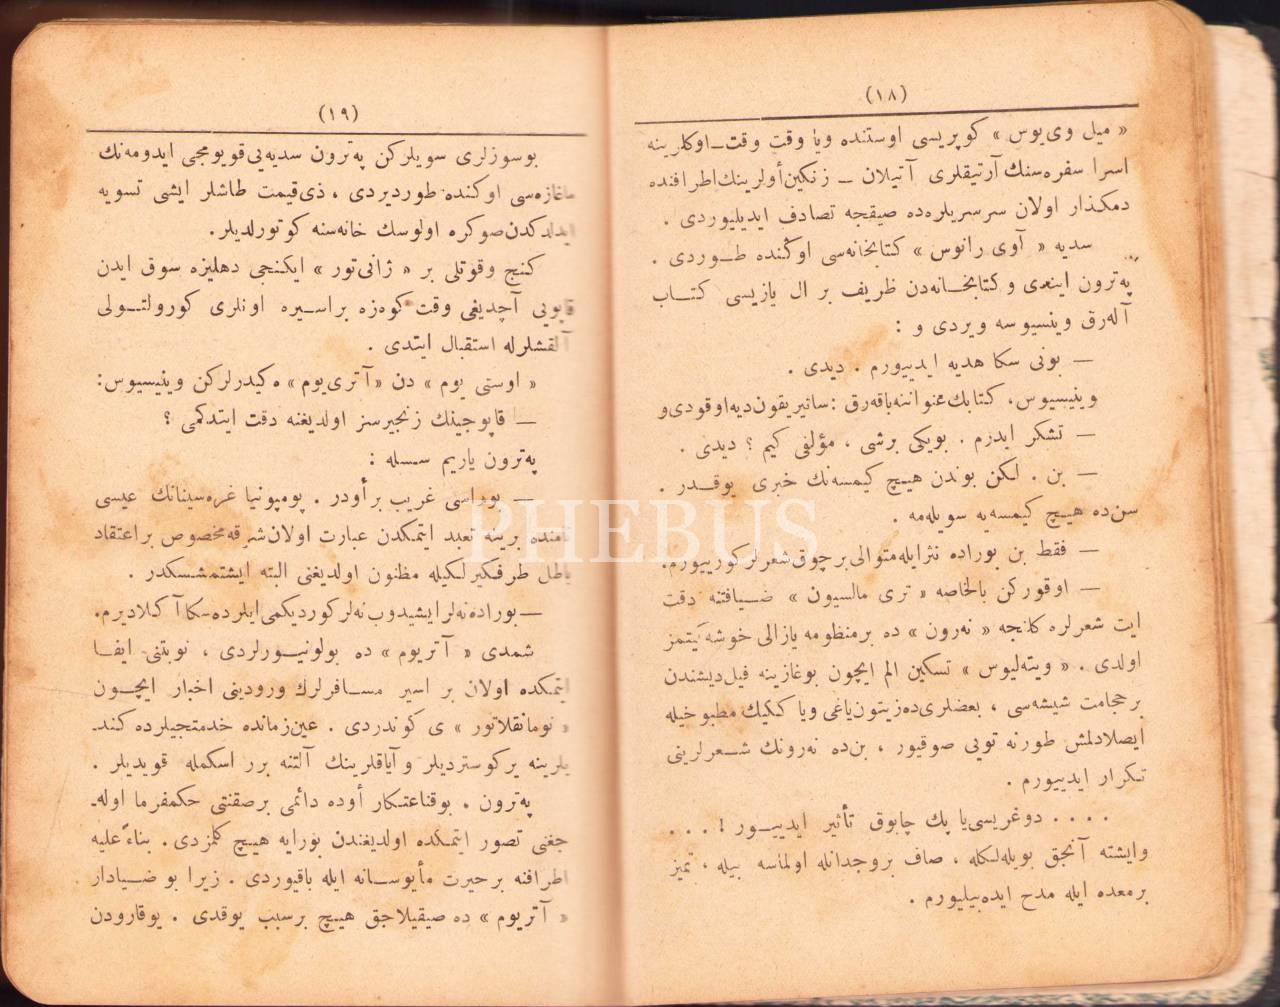 (١٨)
« ميل وى‌يوس » كوپريسى اوستنده ويا وقت وقت ـ اوكلرينه
اسرا سفره‌سنك آرتيقلرى آتيلان ــ زنكين أولرينك اطرافنده
دمكذار اولان سرسريلره‌ده صيقجه تصادف ايديليوردى .
سديه « آوى رانوس » كتابخانه‌سى اوكنده طـوردى .
په‌ترون ايندى و كتابخـانه‌دن ظريف بر ال يازيسى كتــاب
آله‌رق وينسيوسه ويردى و :
— بونى سكا هديه ايدييورم . ديدى .
وينيسيوس، كتابك عنواننه باقه‌رق : ساتيريقون ديه اوقودى و
— تشكر ايدرم . بويكى برشى ، مؤلفى كيم ؟ ديدى .
— بن . لكن بوندن هيـچ كيمسه‌نك خبرى يوقـدر .
سن‌ده هيـچ كيمسه‌يه سويله‌مه .
— فقط بن بوراده نثرايله متوالى برچوق شعرلر كورييورم.
— اوقوركن بالخاصه « ترى مالسيون » ضـيافتنه دقت
ايت شعرلره كلنجه « نه‌رون » ده برمنظومه يازالى خوشه كيتمز
اولدى . « ويته‌ليوس » تسكين الم ايچون بوغازينه فيل ديشندن
برحجامت شيشه‌سى ، بعضلرى‌ده زيتون ياغى ويا ككيك مطبوخيله
ايصلادلمش طورنه تويى صوقيور ، بن‌ده نه‌رونك شـعرلرينى
تكرار ايدييورم .
.... دوغريسى يا پك چابوق تأثير ايدييـور ! ...
وايشته آنجق بويله‌لكله ، صاف بروجدانله اولماسه بيله ، تميز
برمعده ايله مدح ايده‌بيليورم .
(١٩)
بوسوزلرى سويلركن په‌ترون سديه‌يى قويومجى ايدومه‌نك
مغازه‌سى اوكنده طورديردى ، ذى‌قيمت طاشلر ايشى تسويه
ايدلدكدن صوكره اولوسك خانه‌سنه كوتورلديلر.
كنج وقوتلى بر « ژانى‌تور » ايكنجى دهليزه سوق ايدن
قاپويى آچديغى وقت كوه‌زه براسيره اونلرى كورولتـولى
آلقشلرله استقبال ايتدى .
« اوستى يوم » دن « آترى‌يوم » ه كيدرلركن وينيسيوس:
— قاپوجينك زنجيرسز اولديغنه دقت ايتدكمى ؟
په‌ترون ياريم سسله :
— بوراسى غريب بر أودر . پومپونيا غره‌سينانك عيسى
نامنده برينه تعبد ايتمكدن عبارت اولان شرقه مخصوص براعتقاد
باطل طرفكيرلكيله مظنون اولديغنى البته ايشتمشسكدر .
— بوراده نه‌لر ايشيدوب نه‌لر كورديكمى ايلرده سكا آكلاديرم.
شمدى « آتريوم » ده بولونيـورلردى ، نوبتنى ايفـا
ايتمكده اولان بر اسير مسـافرلرك ورودينى اخبار ايچـون
« نومانقلاتور » ى كوندردى . عين زمانده خدمتجيلرده كندـ
يلرينه يركوستر‌ديلر و آياقلرينك آلتنه برر اسكمله قويديلر .
په‌ترون . بوقناعتكار أوده دائمى برصقنتى حكمفرما اوله‌ـ
جغنى تصور ايتمكده اولديغندن بورايه هيـچ كلمزدى . بناءً عليه
اطرافنه برحيرت مأيوسـانه ايله باقيوردى . زيرا بو ضـيادار
« آتريوم » ده صيقيلاجق هيـچ برسبب يوقدى . يوقارودن
PHEBUS